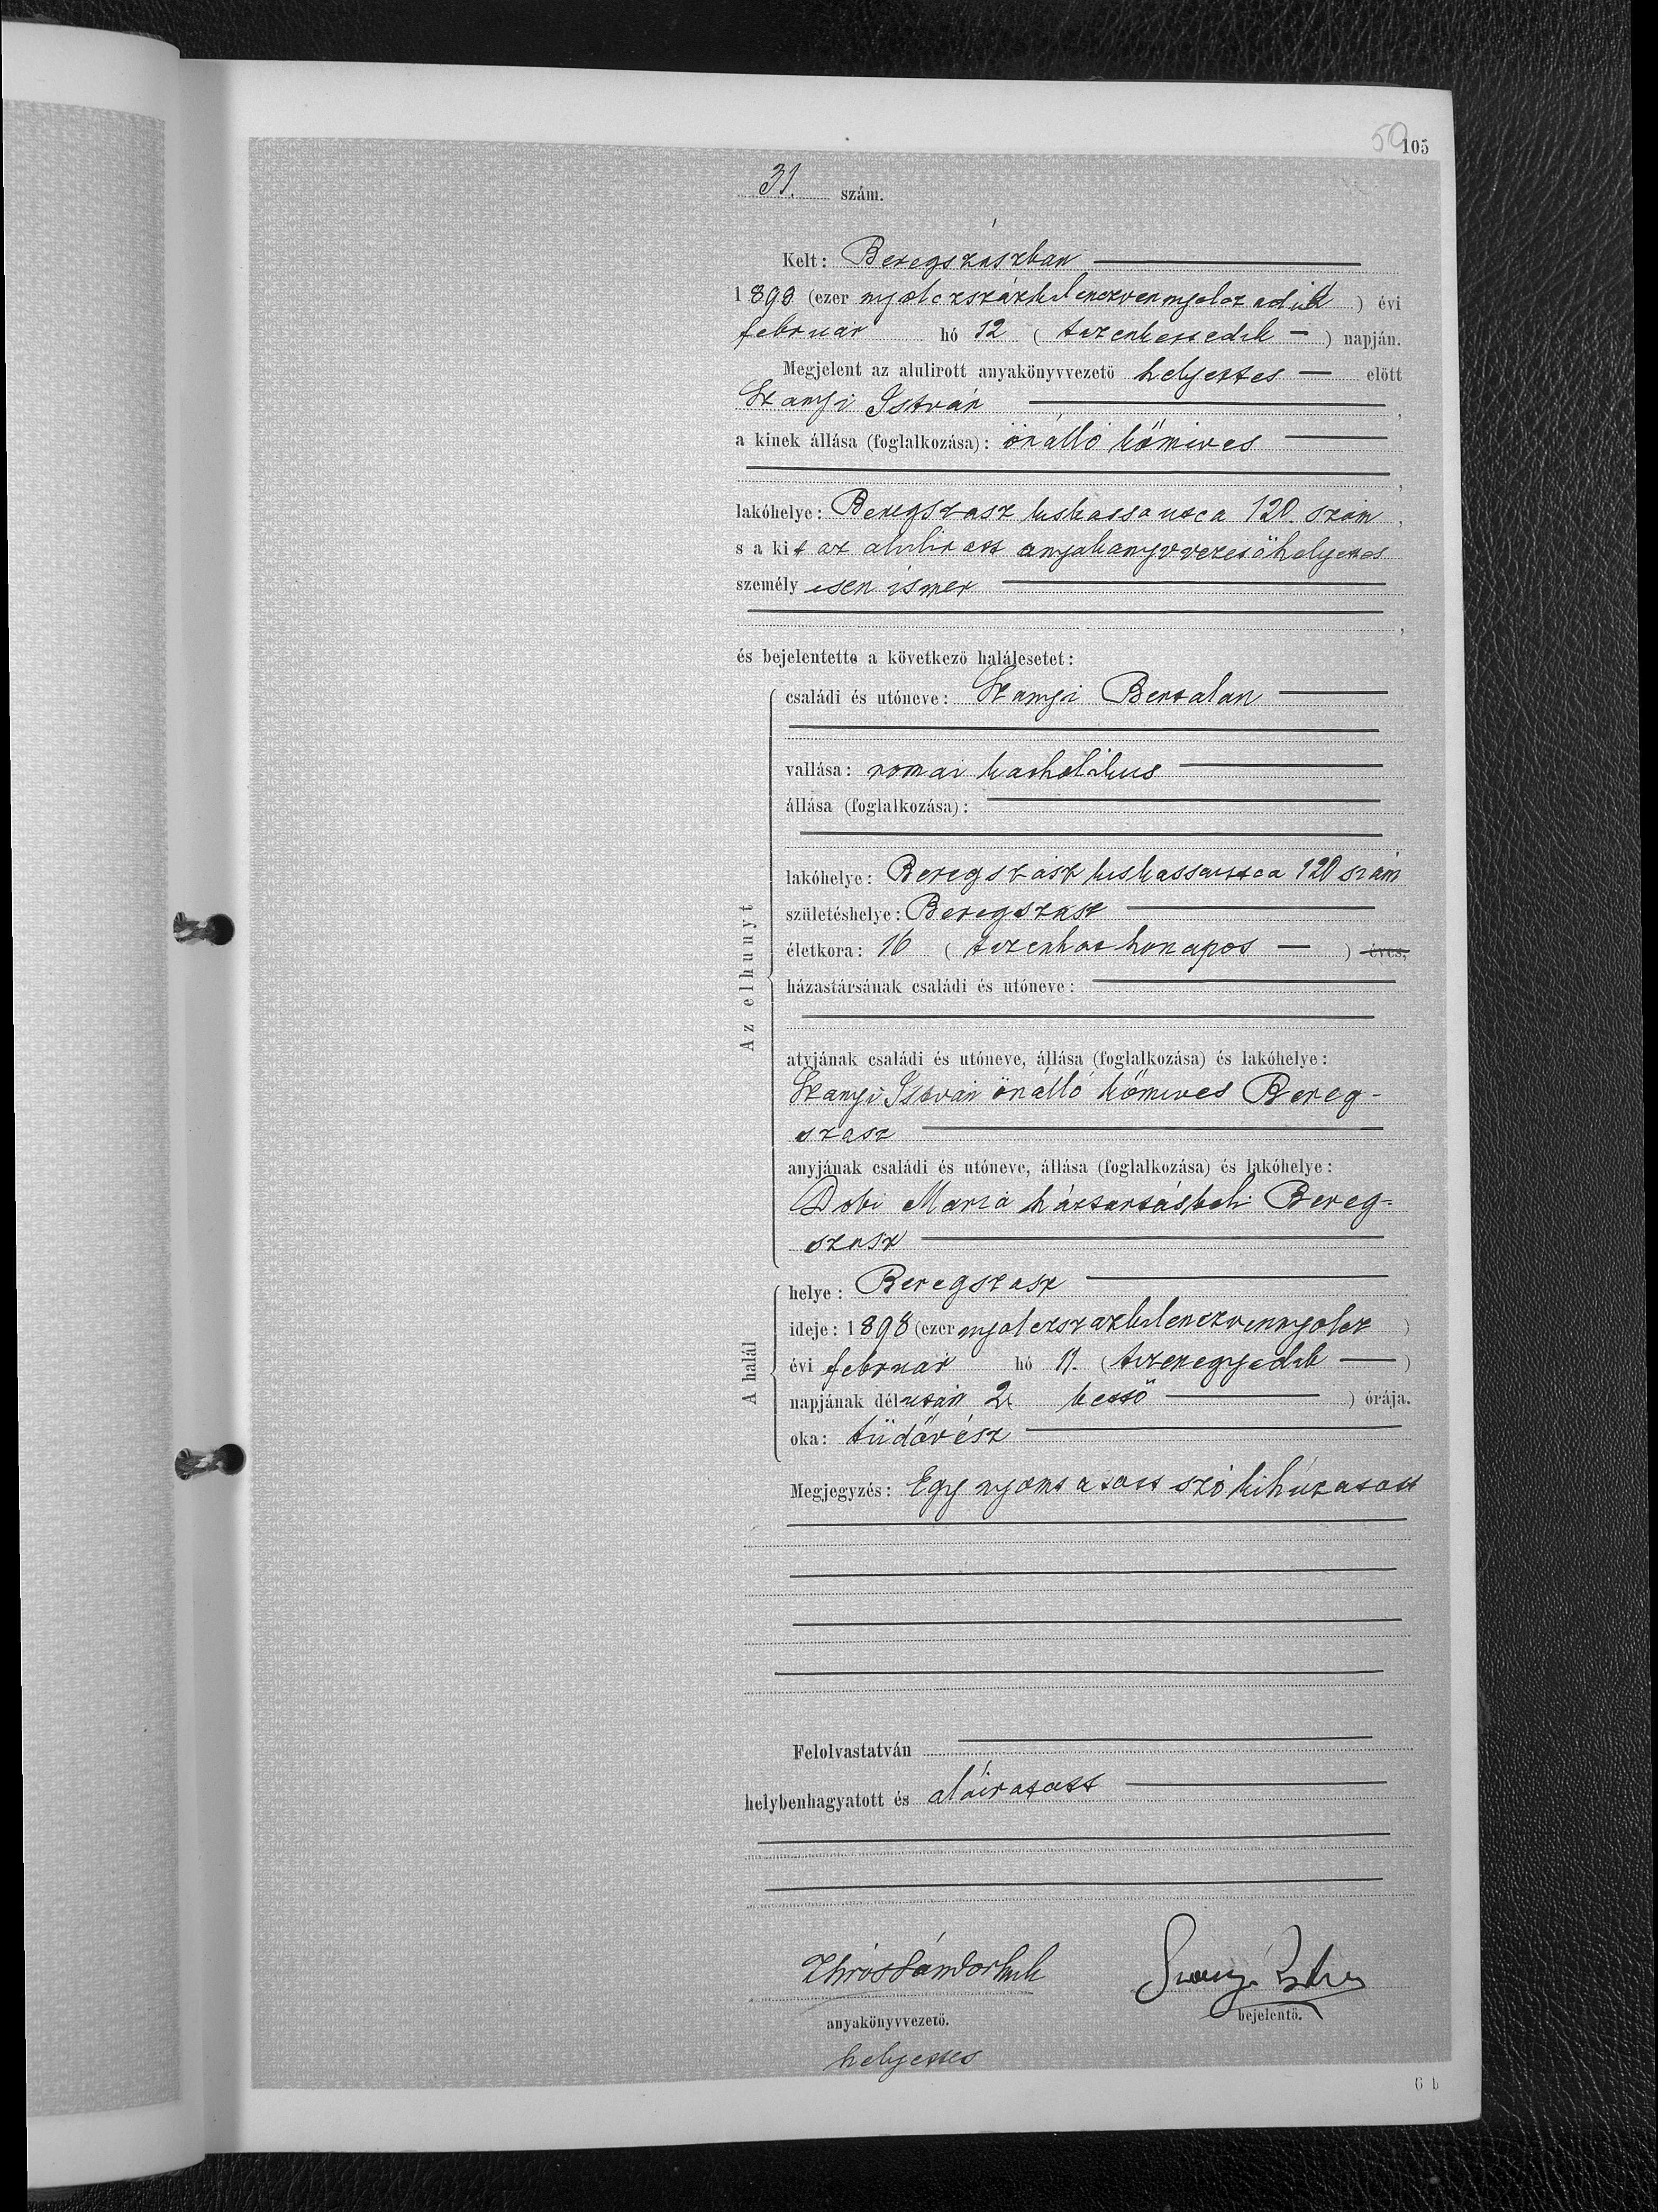 50 105
31. szám.
Kelt: Beregszászban
1898 (ezer nyolczszázkilenczvennyolczadik) évi
február hó 12 (tizenkettedik —) napján.
Megjelent az alulirott anyakönyvvezető helyettes — előtt
Szanyi István,
a kinek állása (foglalkozása): önálló kőmives
,
lakóhelye: Beregszasz kiskassa utca 120. szám,
s a kit az alulirott anyakönyvvezetőhelyettes
személyesen ismer
,
és bejelentette a következő halálesetet:
Az elhunyt
családi és utóneve: Szanyi Bertalan
vallása: romai katholikus
állása (foglalkozása):
lakóhelye: Beregszász kiskassautca 120 szám
születéshelye: Beregszasz
életkora: 16 (tizenhat honapos —) éves,
házastársának családi és utóneve:
atyjának családi és utóneve, állása (foglalkozása) és lakóhelye:
Szanyi István önálló kőmives Bereg-
szasz
anyjának családi és utóneve, állása (foglalkozása) és lakóhelye:
Dobi Mária háztartásbeli Bereg-
szasz
A halál
helye: Beregszasz
ideje: 1898 (ezer nyolczszazkilenczvennyolcz)
évi február hó 11. (tizenegyedik —)
napjának délután 2 kettő) órája.
oka: tüdővész
Megjegyzés: Egy nyomtatott szó kihúzatott
Felolvastatván
helybenhagyatott és aláiratott
Sándor
anyakönyvvezető.
helyettes
Szanyi István
bejelentő.
6 b